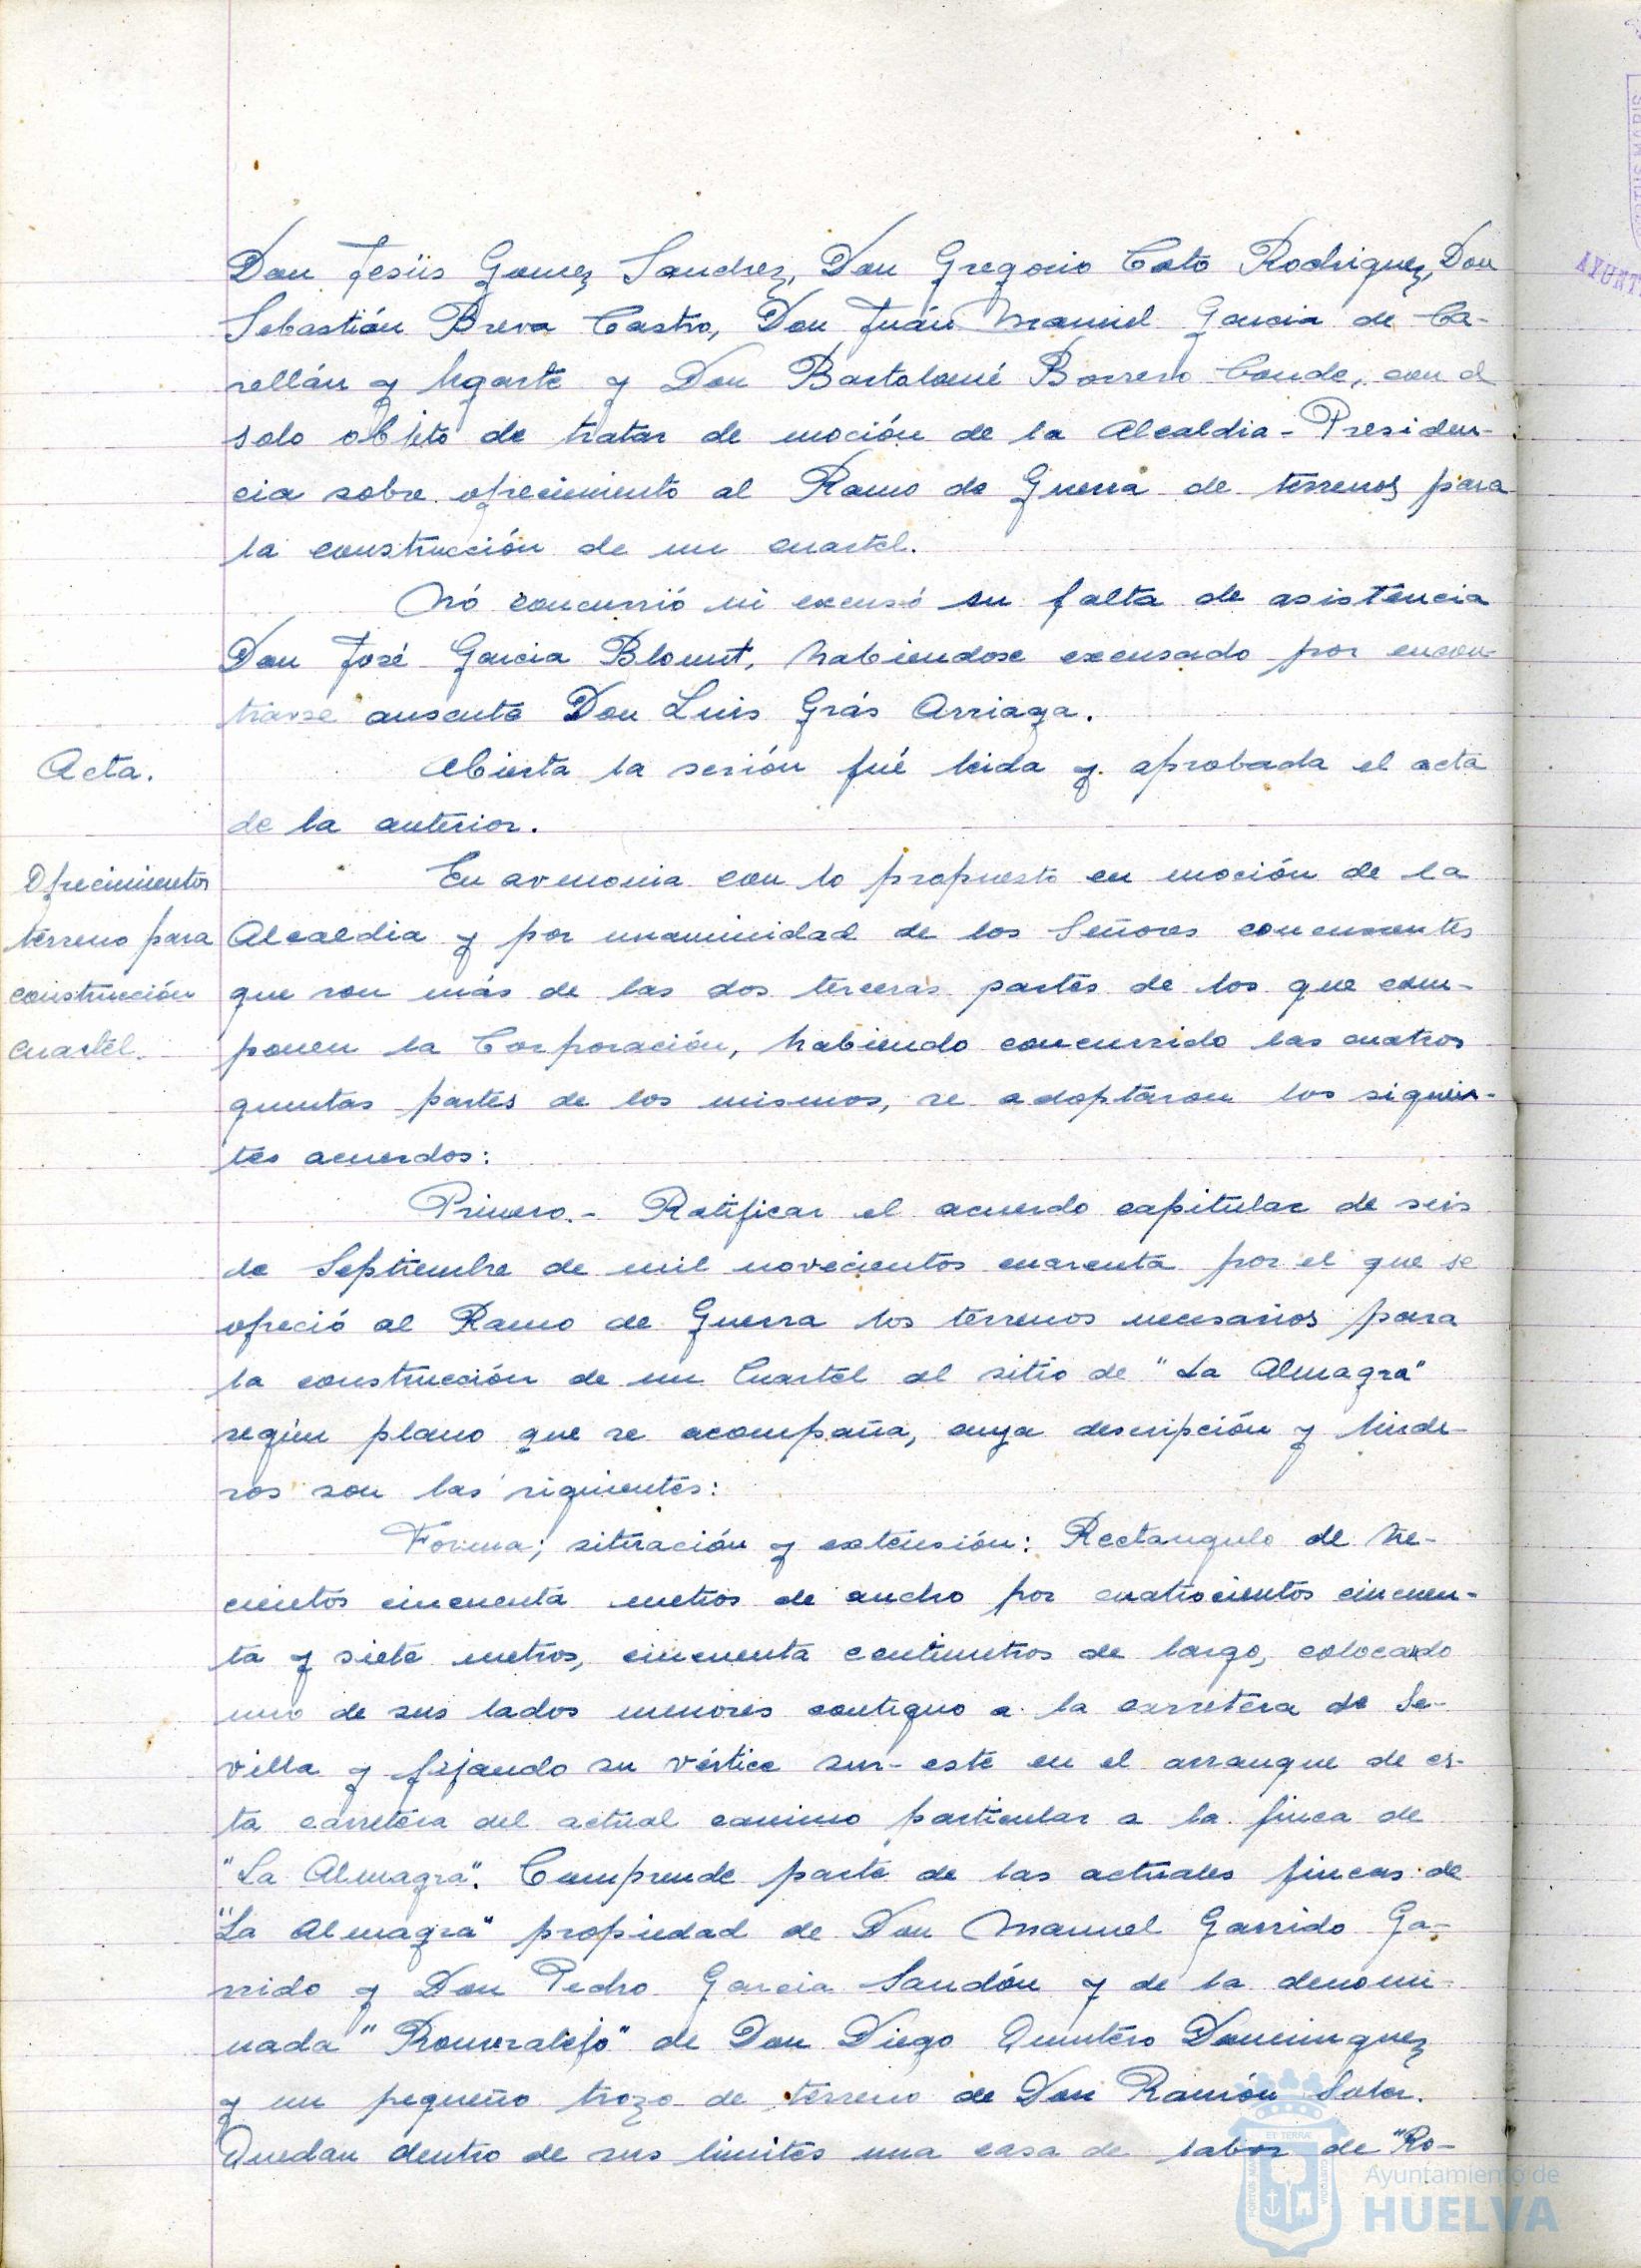 Don Jesús Gomez Sanchez, Don Gregorio Coto Rodriguez, Don
Sebastián Breva Castro, Don Juán Manuel Garcia de Ca-
rellán y Ugarte y Don Bartolomé Borrero Conde, con el
solo objeto de tratar de moción de la Alcaldia-Presiden-
cia sobre ofrecimiento al Ramo de Guerra de terrenos para
la construcción de un cuartel.
Nó concurrió ni excusó su falta de asistencia
Don José Garcia Blount, habiendose excusado por encon-
trarse ausente Don Luis Grás Arriaga.
Acta.
Abierta la sesión fué leida y aprobada el acta
de la anterior.
Ofrecimientos
terreno para
construcción
cuartel.
En avenonia con lo propuesto en moción de la
Alcaldia y por unanimidad de los Señores concurrentes
que son más de las dos terceras partes de los que com-
ponen la Corporación, habiendo concurrido las cuatros
quintas partes de los mismos, se adoptaron los siguien-
tes acuerdos:
Primero.- Ratificar el acuerdo capitular de seis
de Septiembre de mil novecientos cuarenta por el que se
ofreció al Ramo de Guerra los terrenos necesarios para
la construcción de un Cuartel al sitio de "La Almagra"
según plano que se acompaña, cuya descripción y linde-
ros son las siguientes:
Forma; situación y extensión: Rectangulo de tre-
cientos cincuenta metros de ancho por cuatrocientos cincuen-
ta y siete metros, cincuenta centimetros de largo, colocando
uno de sus lados menores contiguo a la carretera de Se-
villa y fijando su vértice sur-este en el arranque de es-
ta carretera del actual camino particular a la finca de
"La Almagra". Comprende parte de las actuales fincas de
"La Almagra" propiedad de Don Manuel Garrido Ga-
rrido y Don Pedro Garcia Sandón y de la denomi-
nada "Romeralejo" de Don Diego Quintero Dominguez
y un pequeño trozo de terreno de Don Ramón
Quedan dentro de sus limites una casa de labor de "Ro-
Ayuntamiento de
HUELVA